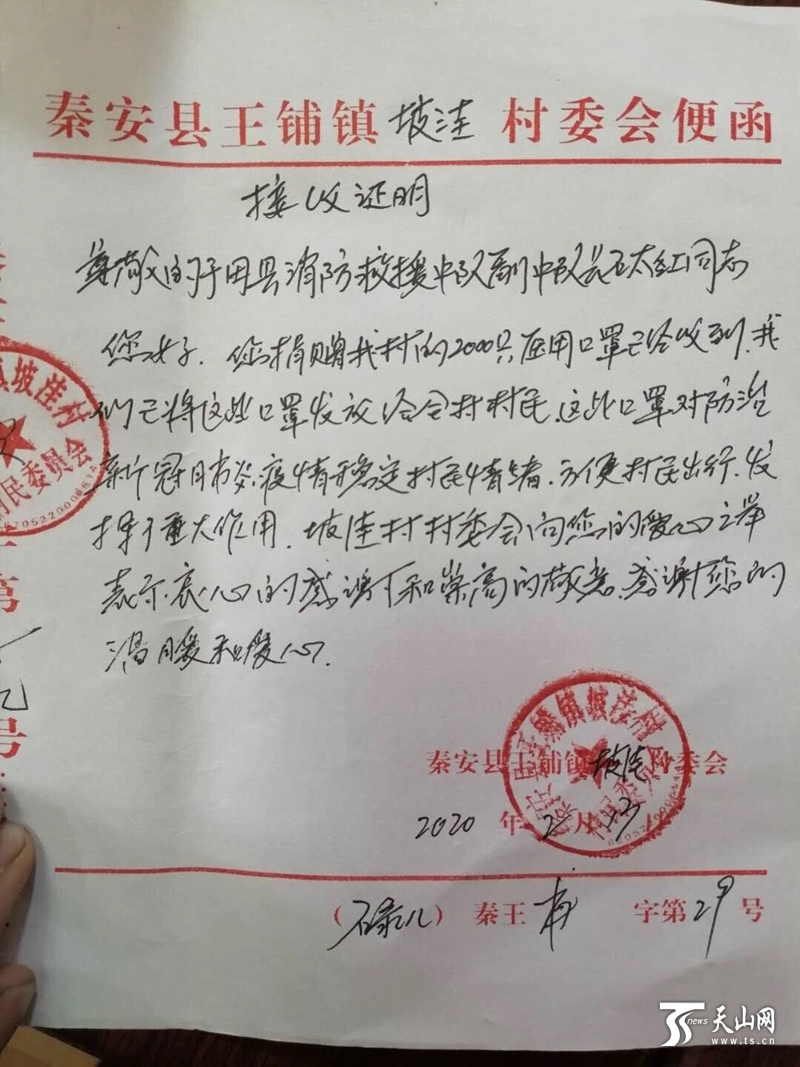 秦安县王铺镇坡洼村委会便函
接收证明
尊敬的于田县消防救援中队副中队长王太红同志
您好.您捐赠我村的2000只医用口罩已经收到.我
们已将这些口罩发放给全村村民.这些口罩对防治
新冠肺炎疫情稳定村民情绪.方便村民出行.发
挥了重大作用.坡洼村村委会向您的爱心之举
表示衷心的感谢和崇高的敬意.感谢您的
温暖和爱心.
秦安县王铺镇坡洼村委会
2020年2月13
秦王 字第29号
坡洼村
民委员会
天山网
www.ts.cn